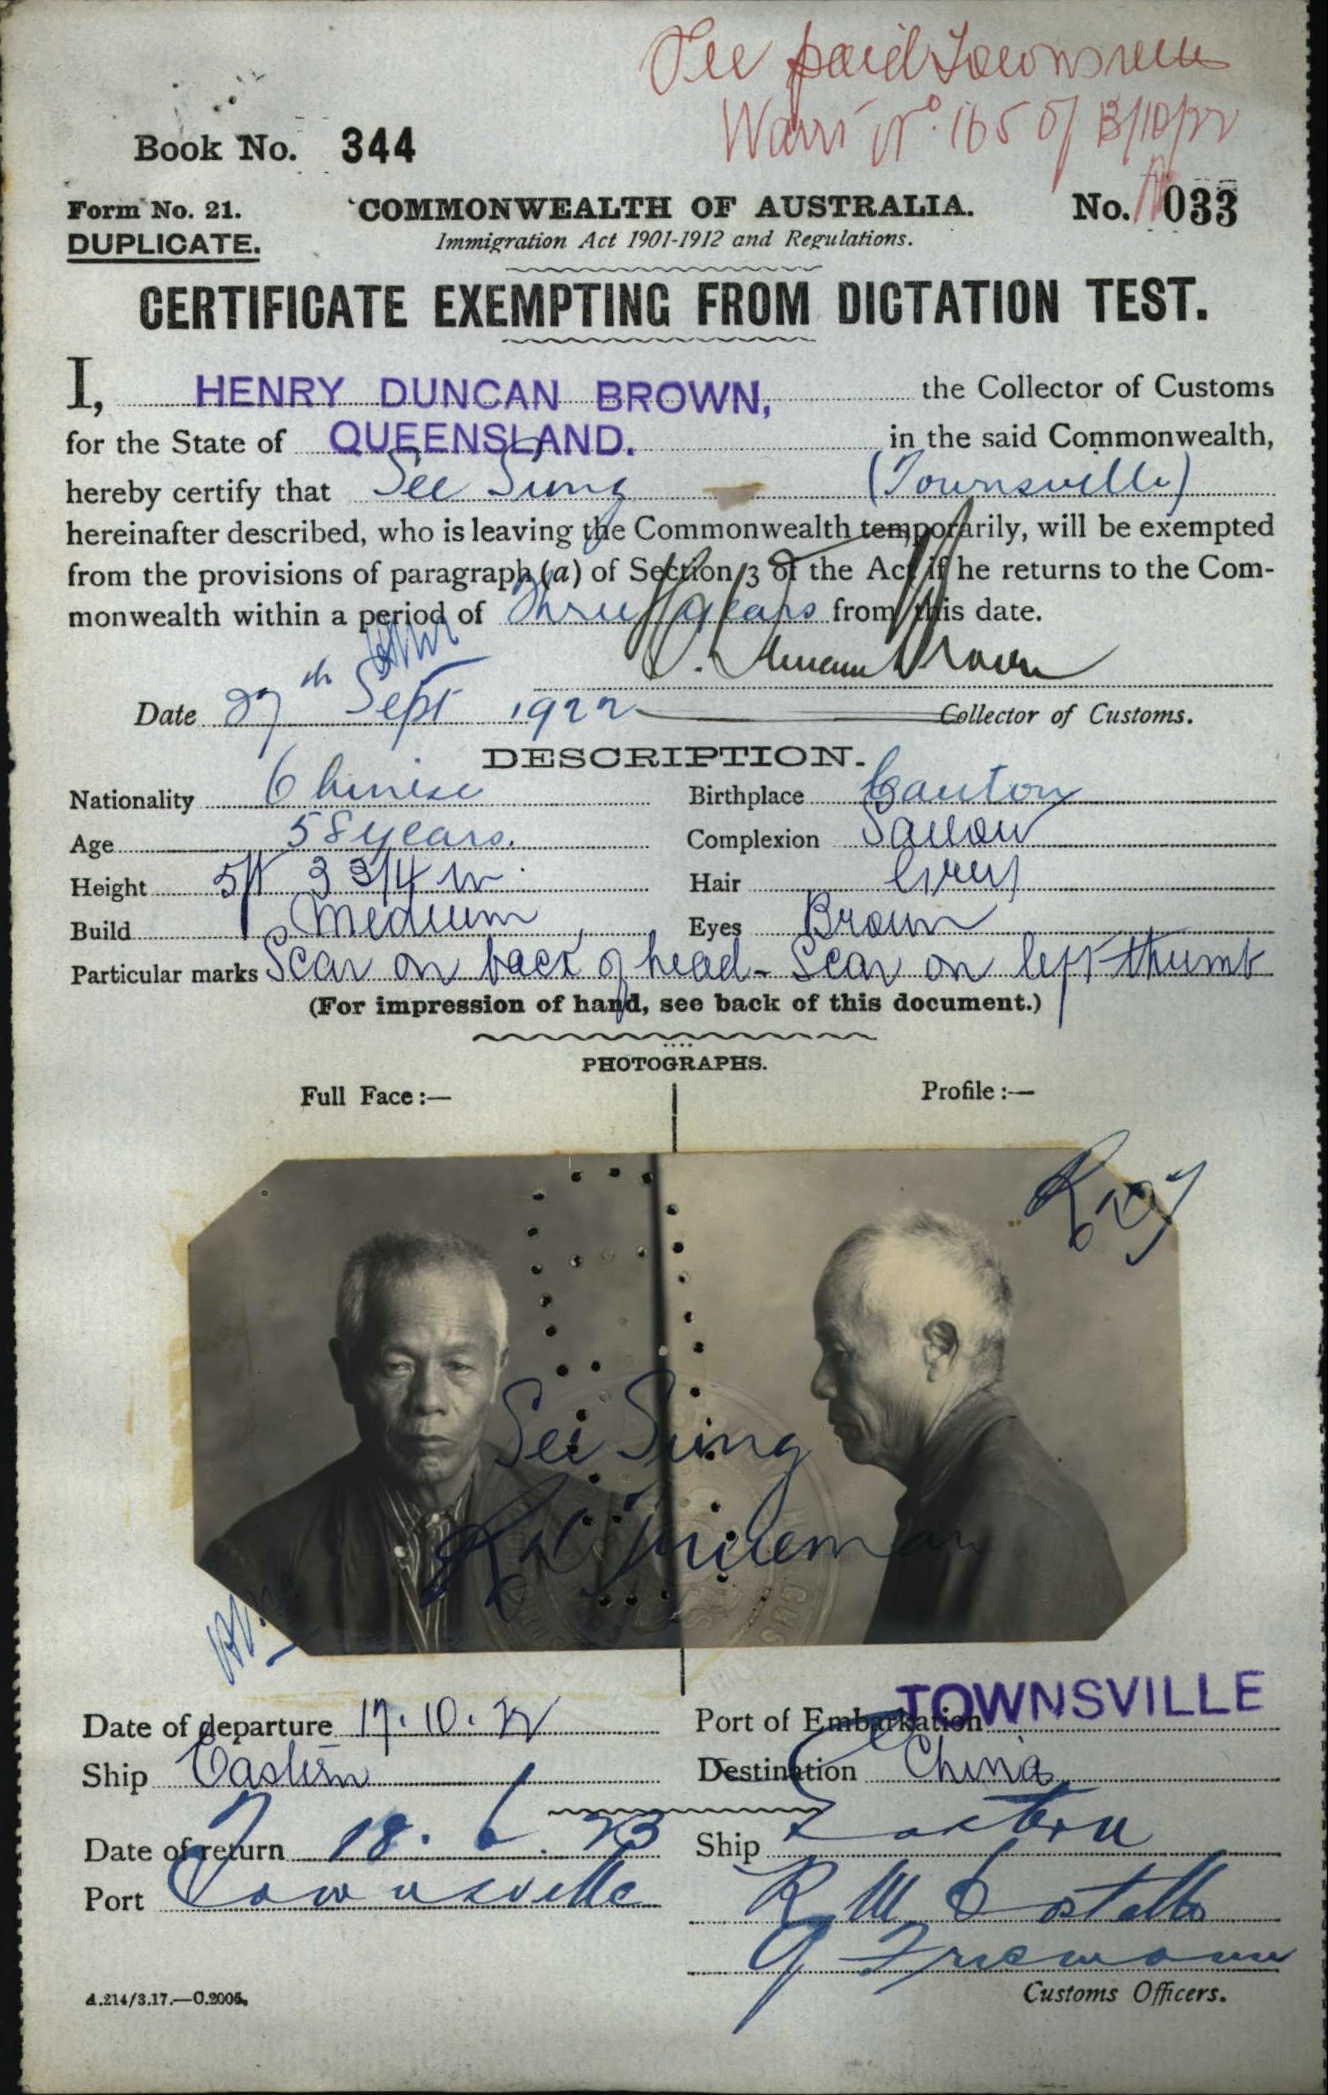 Fee paid Townsville
Warrt No. 165 of 13/10/22
Book No. 344
Form No. 21.
COMMONWEALTH OF AUSTRALIA.
No. 033
DUPLICATE.
Immigration Act 1901-1912 and Regulations.
CERTIFICATE EXEMPTING FROM DICTATION TEST.
I, HENRY DUNCAN BROWN, the Collector of Customs
for the State of QUEENSLAND. in the said Commonwealth,
hereby certify that See Sung (Townsville)
hereinafter described, who is leaving the Commonwealth temporarily, will be exempted
from the provisions of paragraph (a) of Section 3 of the Act if he returns to the Com-
monwealth within a period of Three years from this date.
H. Duncan Brown
Date 27th Sept 1922
Collector of Customs.
DESCRIPTION.
Nationality Chinese
Birthplace Canton
Age 58 years.
Complexion Sallow
Height 5ft 3 3/4 in
Hair Grey
Build Medium
Eyes Brown
Particular marks Scar on back of head - Scar on left thumb
(For impression of hand, see back of this document.)
PHOTOGRAPHS.
Full Face:—
Profile:—
See Sung
Date of departure 17.10.22
Port of Embarkation TOWNSVILLE
Ship Eastern
Destination China
Date of return 18.6.23
Ship Eastern
Port Townsville
R M Costello
Customs Officers.
A.214/3.17.—C.2005.